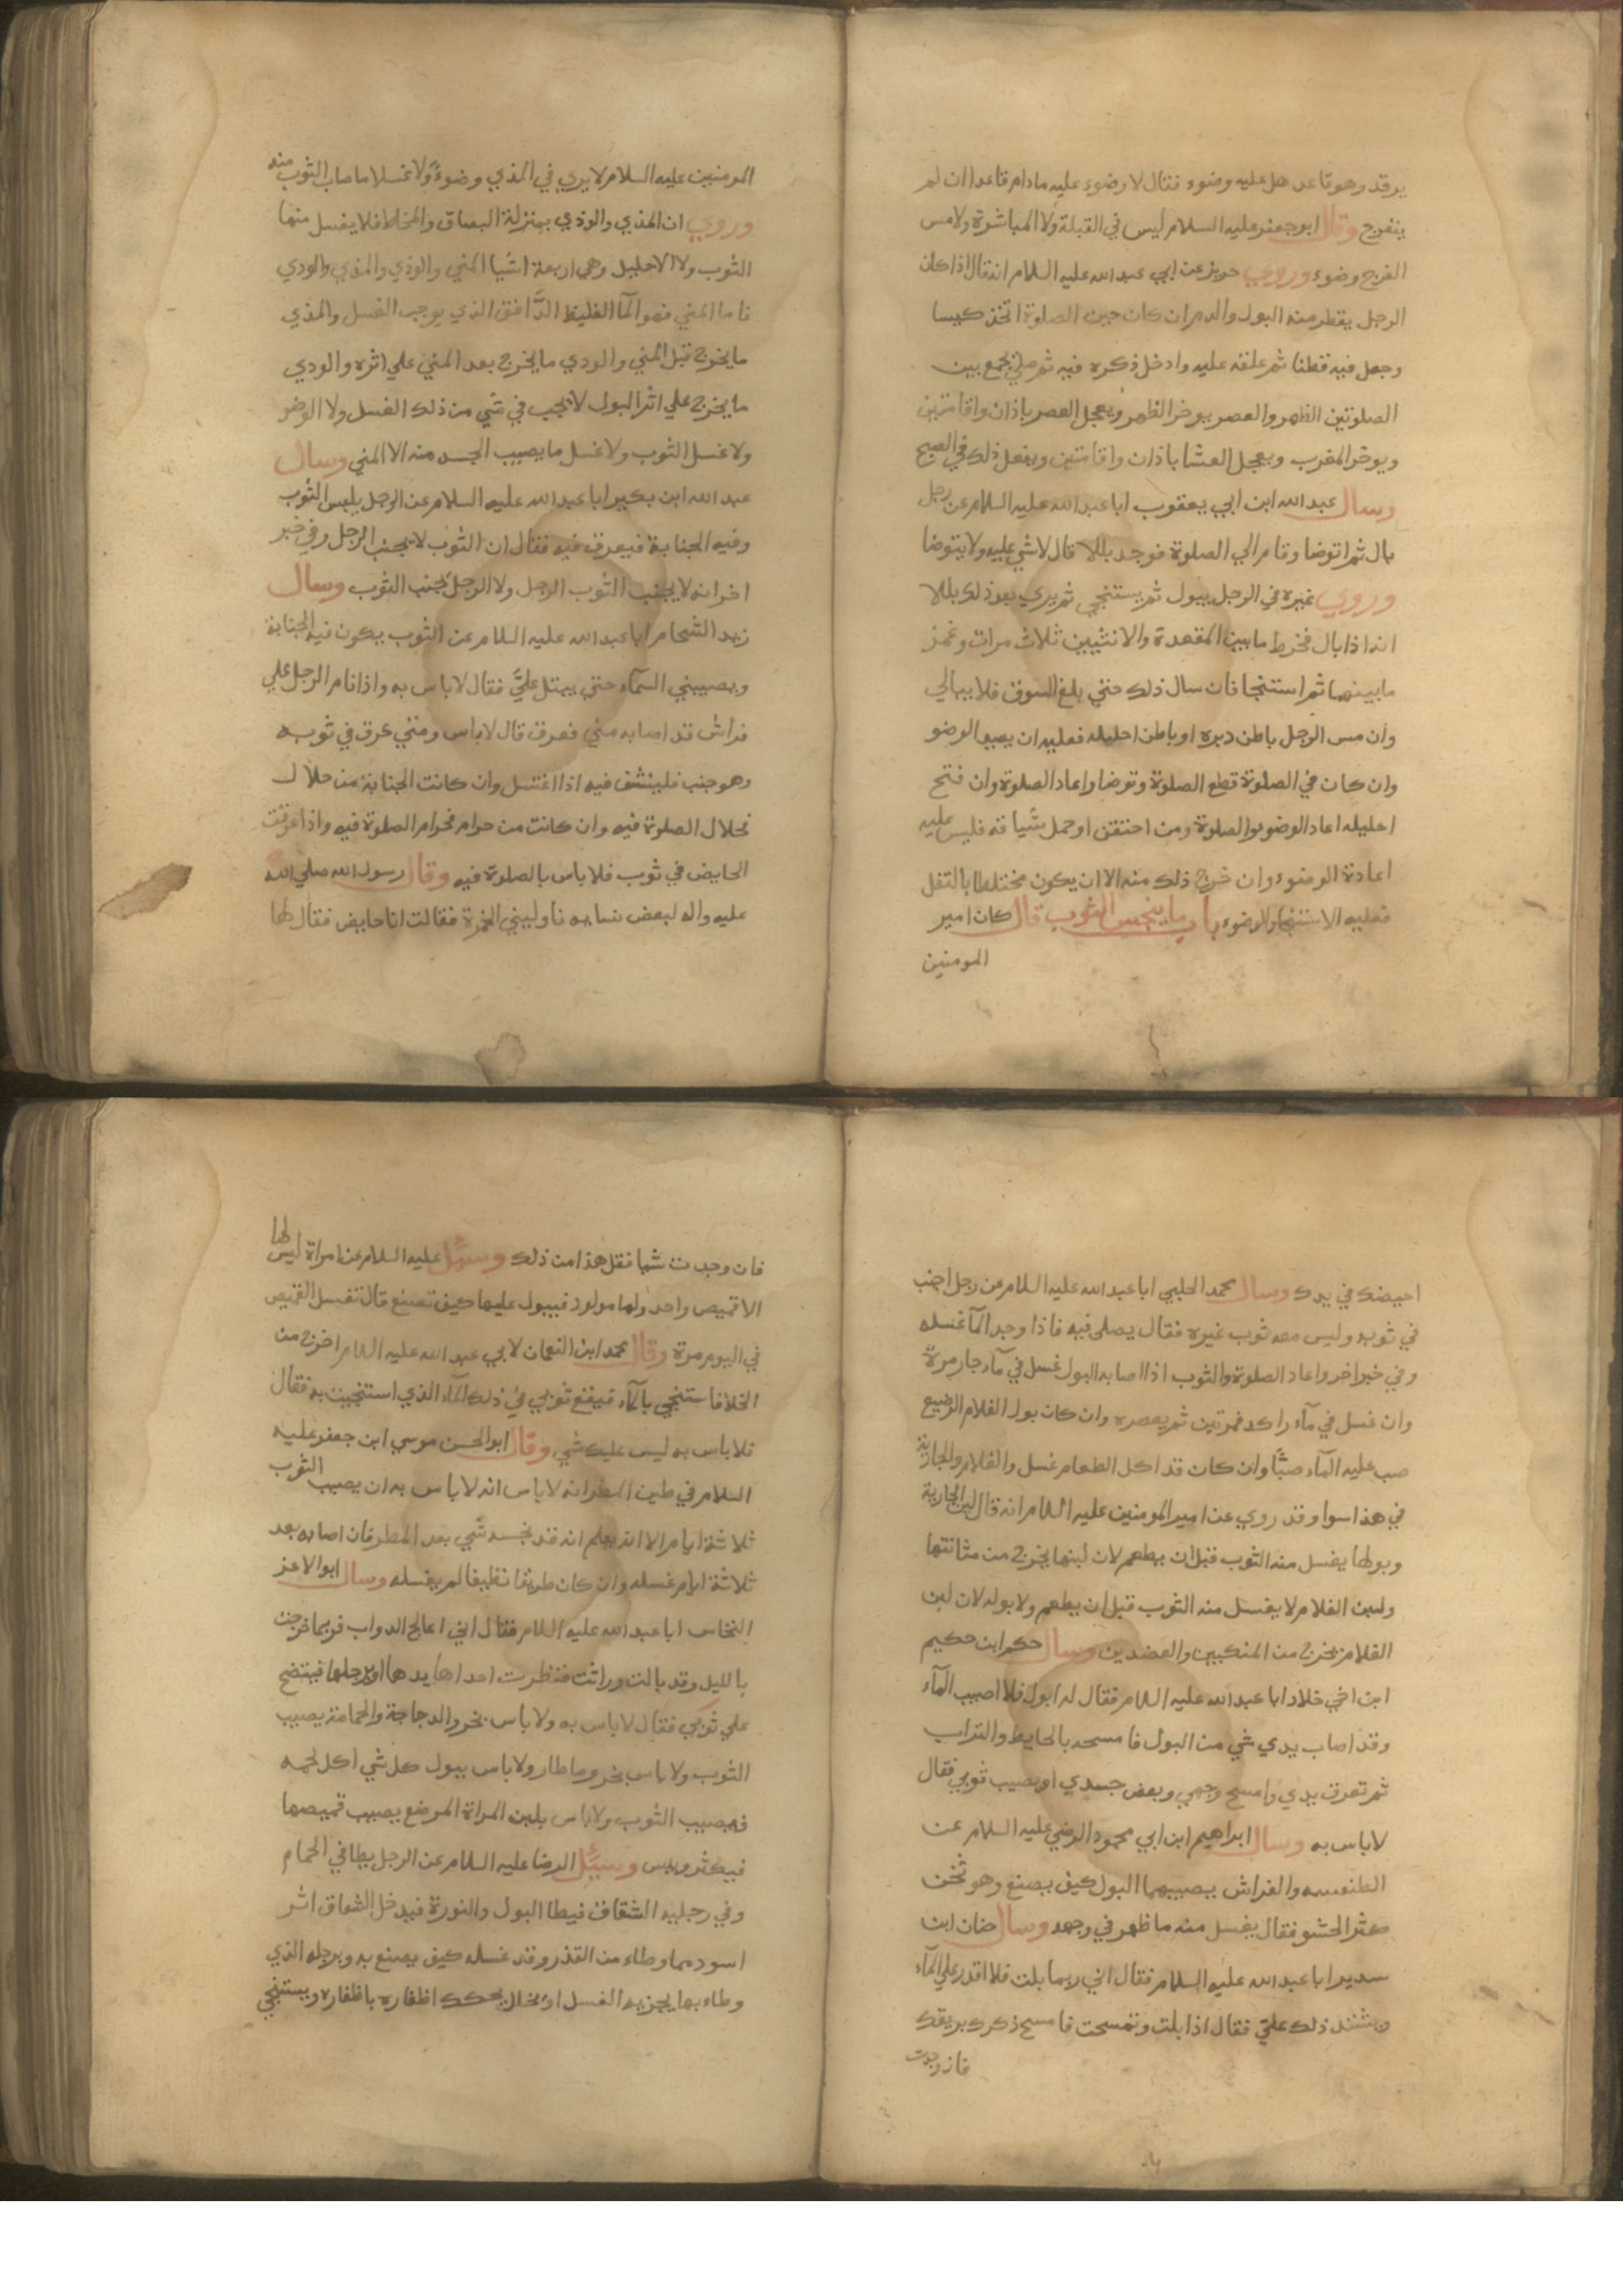 يرقد وهو قاعد هل عليه وضوء فقال لا وضوء عليه مادام قاعدا ان لم
ينفرج وقال ابو جعفر عليه السلام ليس في القبلة ولا المباشرة ولا مس
الفرج وضوء وروي حريز عن ابي عبد الله عليه السلام انه قال اذا كان
الرجل يقطر منه البول والدم ان كان حين الصلوة اتخذ كيسا
وجعل فيه قطنا ثم علقه عليه وادخل ذكره فيه ثم صلي يجمع بين
الصلوتين الظهر والعصر يوخر الظهر ويعجل العصر باذان واقامتين
ويوخر المغرب ويعجل العشا باذان واقامتين ويفعل ذلك في الصبح
وسال عبد الله ابن ابي يعقوب ابا عبد الله عليه السلام عن رجل
بال ثم توضا وقام الي الصلوة فوجد بللا قال لا شي عليه ولا يتوضا
وروي غيره في الرجل يبول ثم يستنجي ثم يري بعد ذلك بللا
انه اذا بال فخرط ما بين المقعدة والانثيين ثلاث مرات وغمز
ما بينهما ثم استنجا فان سال ذلك حتي بلغ السوق فلا يبالي
وان مس الرجل باطن دبره او باطن احليله فعليه ان يعيد الوضو
وان كان في الصلوة قطع الصلوة وتوضا واعاد الصلوة وان فتح
احليله اعاد الوضو والصلوة ومن احتقن او حمل شيافه فليس عليه
اعادة الوضوء وان خرج ذلك منه الا ان يكون مختلطا بالثفل
فعليه الاستنجا والوضوء باب ما ينجس الثوب قال كان امير
المومنين
المومنين عليه السلام لا يري في المذي وضوءً ولا غسلا ما صاب الثوب منه
وروي ان المذي والوذي بمنزلة البصاق والمخاط فلا يغسل منهما
الثوب ولا الاحليل وهي اربعة اشيا المني والوذي والمذي والودي
فاما المني فهو المآ الغليظ الدَّافق الذي يوجب الغسل والمذي
ما يخرج قبل المني والوذي ما يخرج بعد المني علي اثره والودي
ما يخرج علي اثر البول لا يجب في شي من ذلك الغسل ولا الوضو
ولا غسل الثوب ولا غسل ما يصيب الجسد منه الا المني وسال
عبد الله ابن بكير ابا عبد الله عليه السلام عن الرجل يلبس الثوب
وفيه الجنابة فيعرق فيه فقال ان الثوب لا يجنب الرجل وفي خبر
اخر انه لا يجنب الثوب الرجل ولا الرجل يجنب الثوب وسال
زيد الشحام ابا عبد الله عليه السلام عن الثوب يكون فيه الجنابة
ويصيبني السمآء حتي يبتل عليَّ فقال لا باس به واذا نام الرجل علي
فراش قد اصابه مني فعرق قال لا باس ومتي عرق في ثوبه
وهو جنب فلينشف فيه اذا اغتسل وان كانت الجنابة من حلال
فحلال الصلوة فيه وان كانت من حرام فحرام الصلوة فيه واذا عرقت
الحايض في ثوب فلا باس بالصلوة فيه وقال رسول الله صلي الله
عليه واله لبعض نسايه ناوليني الخمرة فقالت انا حايض فقال لها
احيضك في يدك وسال محمد الحلبي ابا عبد الله عليه السلام عن رجل اجنب
في ثوبه وليس معه ثوب غيره فقال يصلي فيه فاذا وجد المآ غسله
وفي خبر اخر واعاد الصلوة والثوب اذا اصابه البول غسل في مآء جار مرة
وان غسل في مآء راكد فمرتين ثم يعصره وان كان بول الغلام الرضيع
صب عليه المآء صبًّا وان كان قد اكل الطعام غسل والغلام والجارية
في هذا سوا وقد روي عن امير المومنين عليه السلام انه قال لبن الجارية
وبولها يغسل منه الثوب قبل ان يطعم لان لبنها يخرج من مثانتها
ولبن الغلام لا يغسل منه الثوب قبل ان يطعم ولا بوله لان لبن
الغلام يخرج من المنكبين والعضدين وسال حكم ابن حكيم
ابن اخي خلاد ابا عبد الله عليه السلام فقال له ابول فلا اصيب المآء
وقد اصاب يدي شي من البول فامسحه بالحايط والتراب
ثم تعرق يدي وامسح وجهي وبعض جسدي او يصيب ثوبي فقال
لا باس به وسال ابراهيم ابن ابي محمود الرضي عليه السلام عن
الطنفسه والفراش يصيبهما البول كيف يصنع وهو ثخن
كثر الحشو فقال يغسل منه ما ظهر في وجهه وسال حنان ابن
سدير ابا عبد الله عليه السلام فقال اني ربما بلت فلا اقدر علي المآء
ويشتد ذلك عليَّ فقال اذا بلت وتمسحت فامسح ذكرك بريقك
فان وجدت
فان وجدت شيا فقل هذا من ذلك وسئل عليه السلام عن امراة ليس لها
الا قميص واحد ولها مولود فيبول عليها كيف تصنع قال تغسل القميص
في اليوم مرة وقال محمد ابن النعمان لابي عبد الله عليه السلام اخرج من
الخلا فاستنجي بالمآء فيقع ثوبي في ذلك المآء الذي استنجيت به فقال
لا باس به ليس عليك شي وقال ابو الحسن موسي ابن جعفر عليه
السلام في طين المطر انه لا باس انه لا باس به ان يصيب الثوب
ثلاثة ايام الا انه يعلم انه قد نجسه شي بعد المطر فان اصابه بعد
ثلاثة ايام غسله وان كان طريقا نظيفا لم يغسله وسال ابو الاعز
النخاس ابا عبد الله عليه السلام فقال اني اعالج الدواب فربما خرجت
بالليل وقد بالت وراثت فنظرت احداها يدها او برجلها فينتضح
علي ثوبي فقال لا باس به ولا باس بخرو الدجاجة والحمامة يصيب
الثوب ولا باس بخرو ما طار ولا باس ببول كل شي اكل لحمه
فيصيب الثوب ولا باس بلبن المراة المرضع يصيب قميصها
فيكثر وييبس وسئل الرضا عليه السلام عن الرجل يطا في الحمام
وفي رجليه الشقاق فيطا البول والنورة فيدخل الشقاق اثر
اسود مما وطاء من القذر وقد غسله كيف يصنع به وبرجله الذي
وطاء بها يجزيه الغسل او يخلل يحكك اظفاره باظفاره ويستنجي